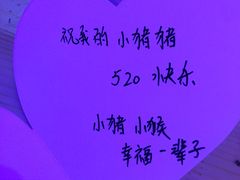 祝我的小猪猪
520快乐
小猪小猴
幸福一辈子